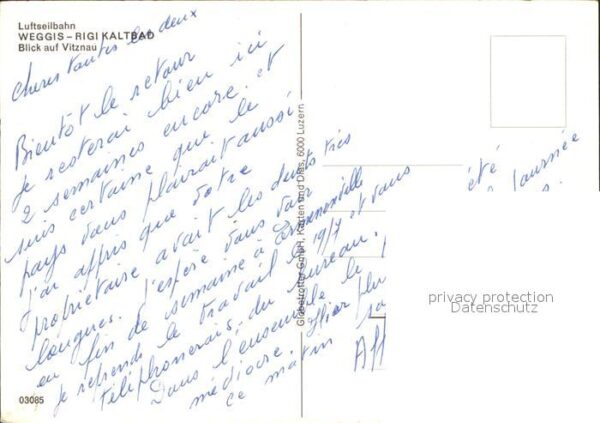 Luftseilbahn
WEGGIS – RIGI KALTBAD
Blick auf Vitznau
Chères tantes les deux
Bientôt le retour
Je resterai bien ici
2 semaines encore et
suis certaine que le
pays vous plairait aussi
J'ai appris que votre
propriétaire avait les dents très
longues. J'espère vous voir
en fin de semaine à
Je reprends le travail le 19/7 et vous
téléphonerais, du bureau.
Dans l'ensemble le
médiocre. Hier
ce matin
été
journée
Aff
Globetrotter GmbH, Karten und Dias, 6000 Luzern
privacy protection
Datenschutz
03085